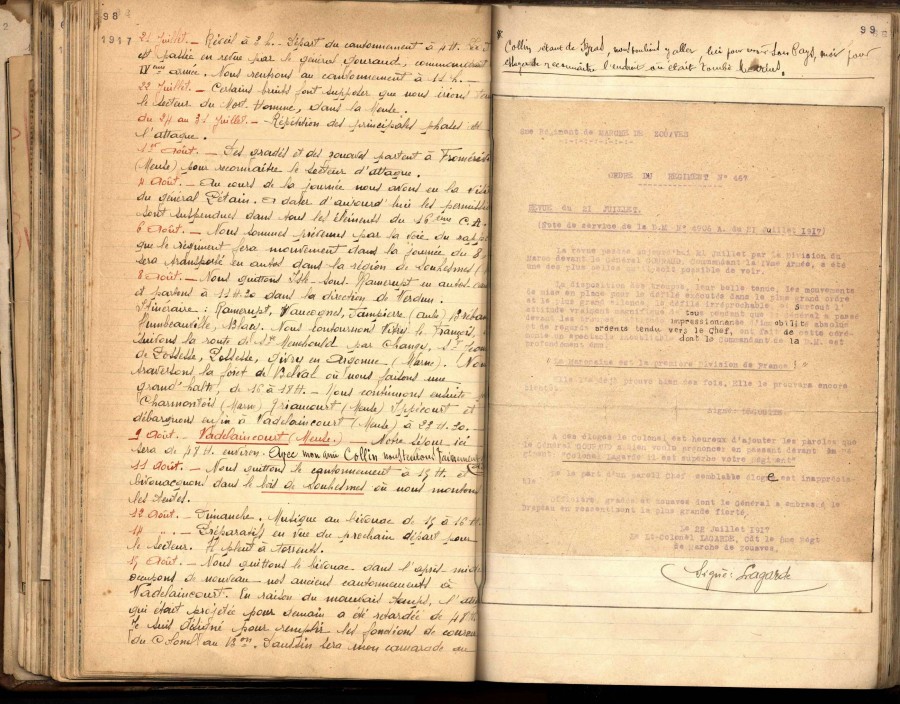 98
1917
21 Juillet. — Réveil à 3 h. — Départ du cantonnement à 4 H.
est passée en revue par le général Gouraud, commandant
IVème armée. Nous rentrons au cantonnement à 11 h. —
22 Juillet. — Certains bruits font supposer que nous irions
le secteur du Mort-Homme, dans la Meuse.
du 24 au 31 Juillet. — Répétition des principales phases de
l'attaque.
1er Août. — Des gradés et des zouaves partent à Froméréville
(Meuse) pour reconnaître le secteur d'attaque.
4 Août. — Au cours de la journée nous avons eu la visite
du général Pétain. A dater d'aujourd'hui les permissions
sont suspendues dans tous les éléments du 16ème C.A.
6 Août. — Nous sommes prévenus par la voie du rapport
que le régiment fera mouvement dans la journée du 8
sera transporté en autos dans la région de Souhesmes
8 Août. — Nous quittons Isle-sous-Ramerupt en autos
et partons à 11 H.30 dans la direction de Verdun.
Itinéraire : Ramerupt, Vaucognes, Dampierre (Aube)
Humbeauville, Blacy. Nous contournons Vitry le François,
suivons la route de Ste Menehould par Changy, St Jean
de Possesse, Possesse, Givry en Argonne (Marne). Nous
traversons la forêt de Belval où nous faisons une
grand'halte, de 16 à 18 H. — Nous continuons ensuite
Charmontois (Marne) Triaucourt (Meuse) Ippécourt et
débarquons enfin à Vadelaincourt (Meuse) à 23 H.30. —
9 Août. — Vadelaincourt (Meuse). — Notre séjour ici
sera de 48 H. environ. Avec mon ami Collin nous
11 Août. — Nous quittons le cantonnement à 15 H. et
bivouaquons dans le bois de Souhesmes où nous montons
les tentes.
12 Août. — Dimanche. Musique au bivouac de 15 à 16 H.
14 — . — Préparatifs en vue du prochain départ pour
le secteur. Il pleut à torrents.
15 Août. — Nous quittons le bivouac dans l'après midi
occupons de nouveau nos anciens cantonnements à
Vadelaincourt. En raison du mauvais temps, l'attaque
qui était projetée pour demain a été retardée de 48
Je suis désigné pour remplir les fonctions de coureur
du Colonel au Bon. Daussin sera mon camarade au
99
Collin étant de Brad, nous voulions y aller lui pour voir son Pays, moi pour
essayer de reconnaître l'endroit où était tombé
8me Régiment de MARCHE DE ZOUAVES
ORDRE DU REGIMENT N° 467
REVUE du 21 JUILLET.
(Note de service de la D.M N° 4904 A. du 21 Juillet 1917)
La revue passée aujourd'hui 21 juillet par la Division du
Maroc devant le Général GOURAUD, Commandant la IVme Armée, a été
une des plus belles qu'il soit possible de voir.
La disposition des troupes, leur belle tenue, les mouvements
de mise en place pour le défilé exécutés dans le plus grand ordre
et le plus grand silence, le défilé irréprochable, surtout l'
attitude vraiment magnifique de tous pendant que le Général a passé
devant les troupes impressionnante d'immobilité absolue
et de regards ardents tendus vers le Chef, ont fait de cette
un spectacle inoubliable dont le Commandant de la D.M. est
profondément ému.
" La Marocaine est la première Division de France ! "
Elle l'a déjà prouvé bien des fois. Elle le prouvera encore
bientôt.
Signé: DEGOUTTE.
A ces éloges le Colonel est heureux d'ajouter les paroles que
le Général GOURAUD a bien voulu prononcer en passant devant le Ré-
giment: "Colonel Lagarde il est superbe votre Régiment"
De la part d'un pareil Chef semblable éloge est inapprécia-
ble
Officiers, gradés et zouaves dont le Général a embrassé le
Drapeau en ressentiront la plus grande fierté.
Le 22 Juillet 1917
Le Lt-Colonel LAGARDE, Cdt le 8me Régt
de marche de zouaves.
Signé: Lagarde